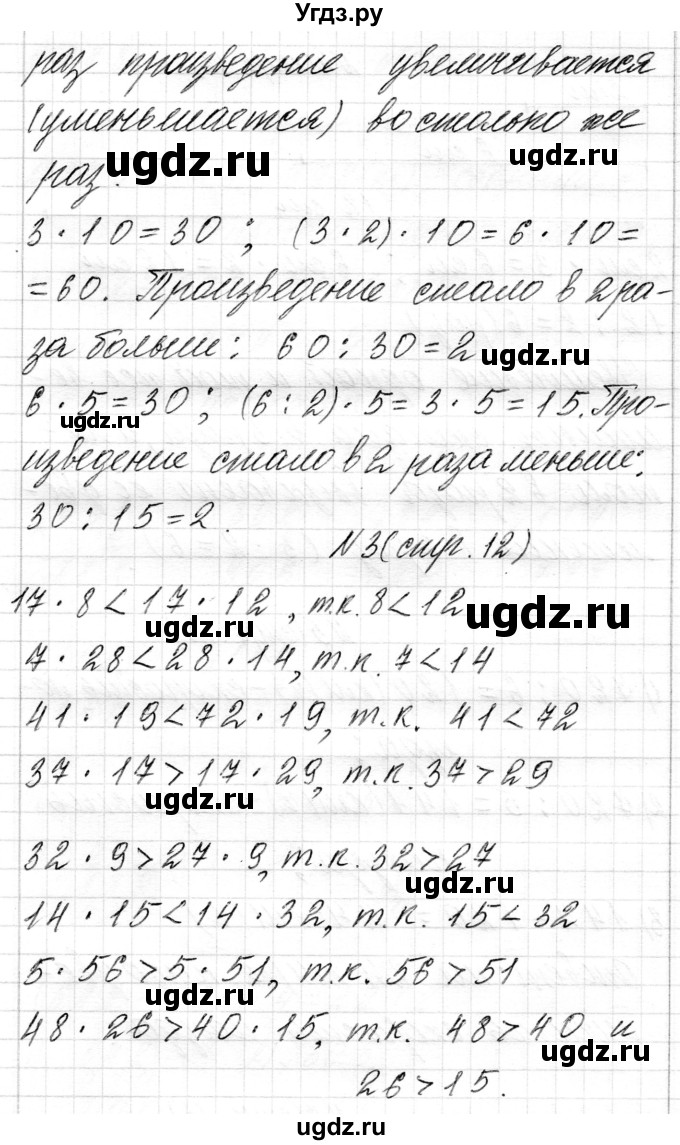 Угдз.ру
раз произведение увеличивается
(уменьшается) во столько же
ugdz.ru
раз.
3 · 10 = 30 ; (3 · 2) · 10 = 6 · 10 =
= 60. Произведение стало в 2 ра-
за больше: 60 : 30 = 2
ugdz.ru
6 · 5 = 30 ; (6 : 2) · 5 = 3 · 5 = 15. Про-
ugdz.ru
изведение стало в 2 раза меньше:
30 : 15 = 2.
N 3 (стр. 12)
17 · 8 < 17 · 12 , т.к. 8 < 12
ugdz.ru
ugdz.ru
7 · 28 < 28 · 14, т.к. 7 < 14
41 · 19 < 72 · 19, т.к. 41 < 72
37 · 17 > 17 · 29, т.к. 37 > 29
ugdz.ru
32 · 9 > 27 · 9, т.к. 32 > 27
ugdz.ru
14 · 15 < 14 · 32, т.к. 15 < 32
5 · 56 > 5 · 51, т.к. 56 > 51
ugdz.ru
48 · 26 > 40 · 15, т.к. 48 > 40 и
ugdz.ru
26 > 15.
ugdz.ru